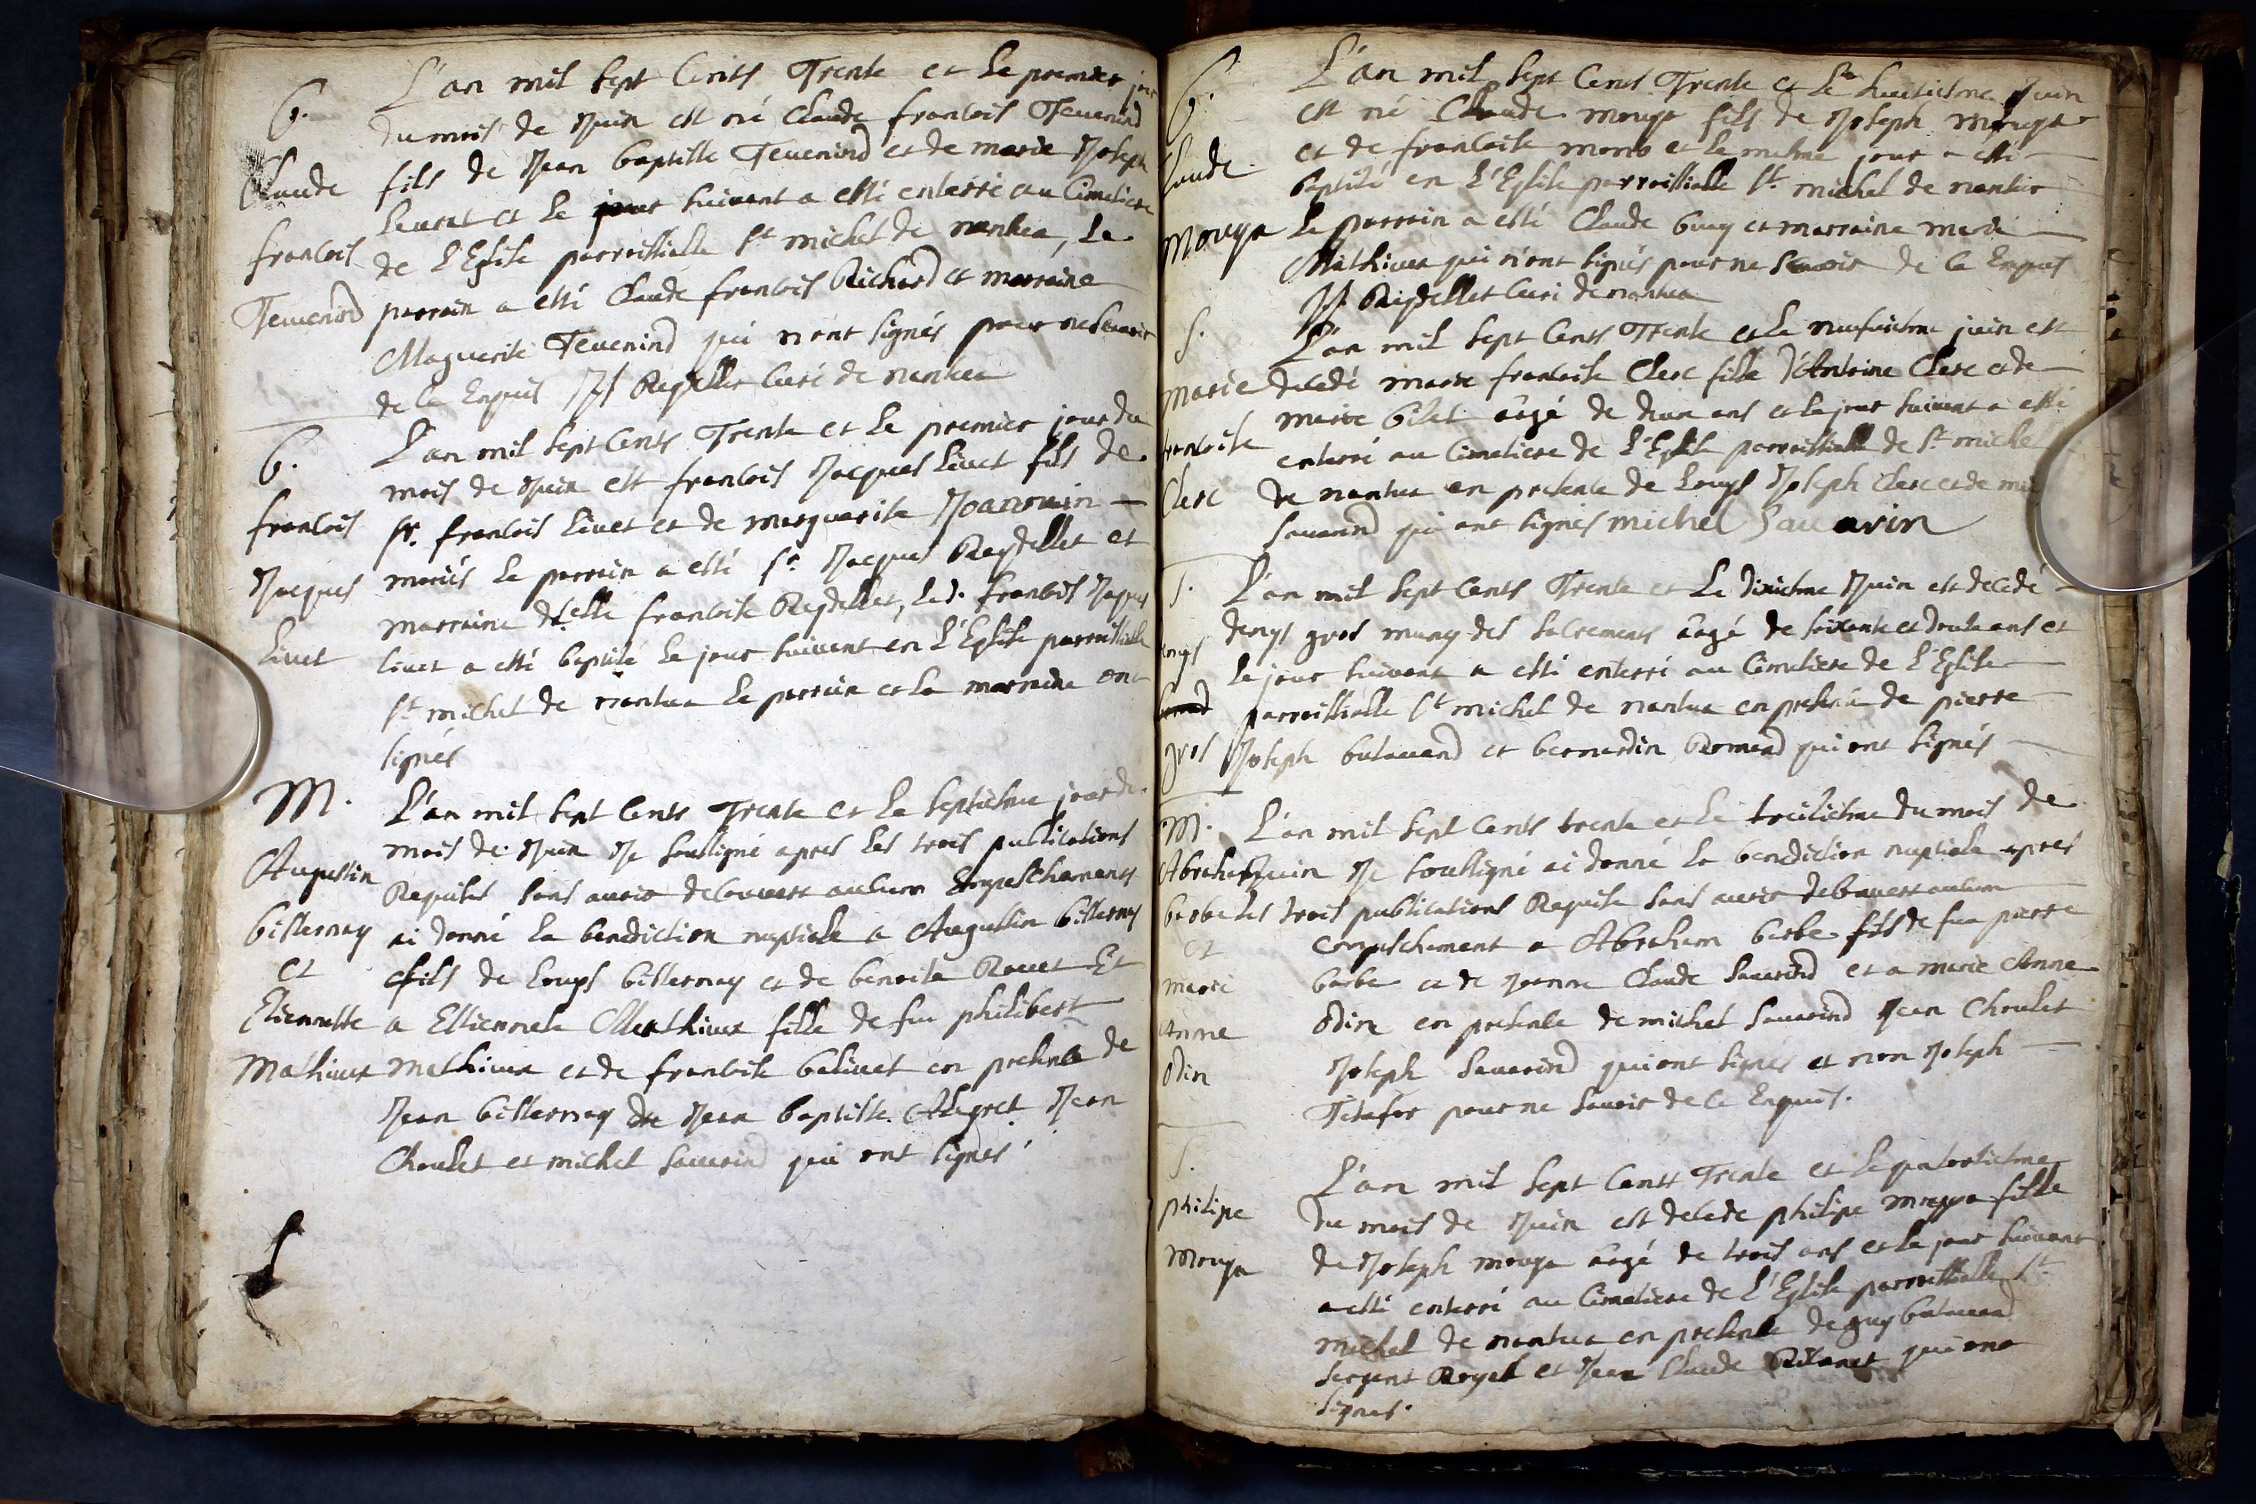 L'an mil sept Cents Trente et Le premier jour
B. du mois de Juin est né Claude francois Tevenind
Claude fils de Jean baptiste Tevenind et de marie Joseph
Levrat et Le jour suivant a esté enterré au Cimetiere
francois de L'Eglise parroissialle St michel de nantua, Le
Tevenind parrain a esté Claude francois Richard et marraine
Marguerite Tevenind qui n'ont signés pour ne Scavoir
de Ce Enquis Reydellet Curé de nantua
B. L'an mil sept Cents Trente et Le premier jour du
mois de Juin est francois Jacques Livet fils de
francois Sr. francois Livet et de marguerite
Jacques mariés Le parrain a esté Sr Jacques Reydellet et
marraine dlle francoise Reydellet, Led. francois Jaques
Livet Livet a esté baptisé Le jour suivant en L'Eglise parroissialle
St michel de nantua Le parrain et La marraine ont
signés
M. L'an mil sept Cents Trente et Le septiesme jour du
mois de Juin Je soussigné apres Les trois publications
Augustin Requises sans avoir decouvert aucun Empeschements
bissernay ai donné La benediction nuptiale a Augustin bissernay
et fils de Louys bissernay et de benoite Ravet Et
Etiennette a Estiennete Mathieux fille de feu philibert
Mathieux Mathieux et de francoise balivet en presence de
Jean bissernay de Jean baptiste Alegret Jean
Choulet et michel Savarind qui ont signés
L'an mil sept Cents Trente et Le huitiesme Juin
B. est né Claude mouya fils de Joseph mouya
Claude et de francoise et Le mesme jour a esté
baptisé en L'Eglise parroissialle St. michel de nantua
Mouya Le parrain a esté Claude buey et marraine marie
Mathieux qui n'ont signés pour ne Scavoir de Ce Enquis
Reydellet Curé de nantua
S. L'an mil sept Cents Trente et Le neufviesme juin est
Marie decedé marie francoise Clerc fille d'Antoine Clerc et de
marie âagé de deux ans et Le jour suivant a esté
francoise enterré au Cimetiere de L'Eglise parroissialle de St michel
Clerc de nantua en presence de Louys Joseph Clerc et de
Savarind qui ont signés michel Savarin
S. L'an mil sept Cents Trente et Le dixiesme Juin est decedé
denys gros muny des sacrements âagé de soixante et douze ans et
denys Le jour suivant a esté enterré au Cimetiere de L'Eglise
parroissialle St michel de nantua en presence de pierre
gros Joseph butavand et bernardin Romand qui ont signés
M. L'an mil sept Cents trente et Le treisiesme du mois de
Abraham Juin Je soussigné ai donné La benediction nuptiale apres
barbe Les trois publications Requise sans avoir decouvert aucun
et empeschement a Abraham barbe fils de feu pierre
marie barbe et de Jeanne Claude Savarind et a marie Anne
Anne Odin en presence de michel Savarind Jean Choulet
Odin Joseph Savarind qui ont signés et non Joseph
Titafor pour ne Savoir de Ce Enquis.
S. L'an mil sept Cents Trente et Le quatorsiesme
philipe du mois de Juin est decede philipe mouya fille
Mouya de Joseph mouya âagé de trois ans et Le jour suivant
a esté enterré au Cimetiere de L'Eglise parroissialle St
michel de nantua en presence de guy butavand
sergent Royal et Jean Claude qui ont
signés.